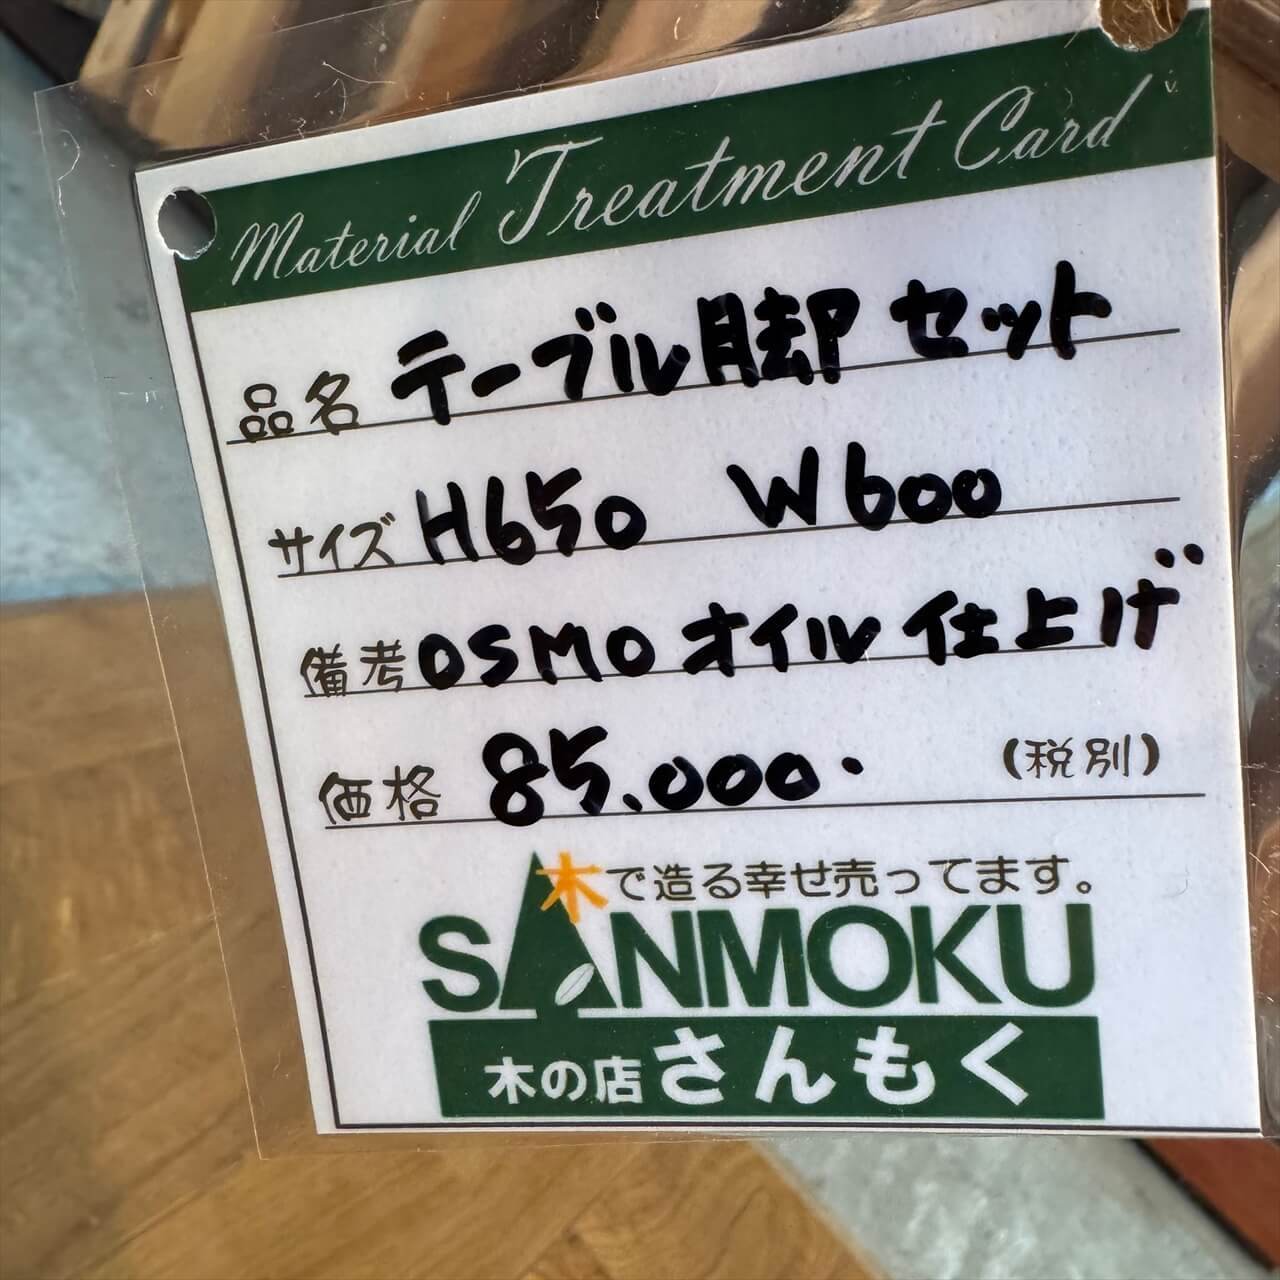 Material Treatment Card
品名 テーブル脚セット
サイズ H650 W600
備考 OSMOオイル仕上げ
価格 85.000. (税別)
木で造る幸せ売ってます。
SANMOKU
木の店さんもく